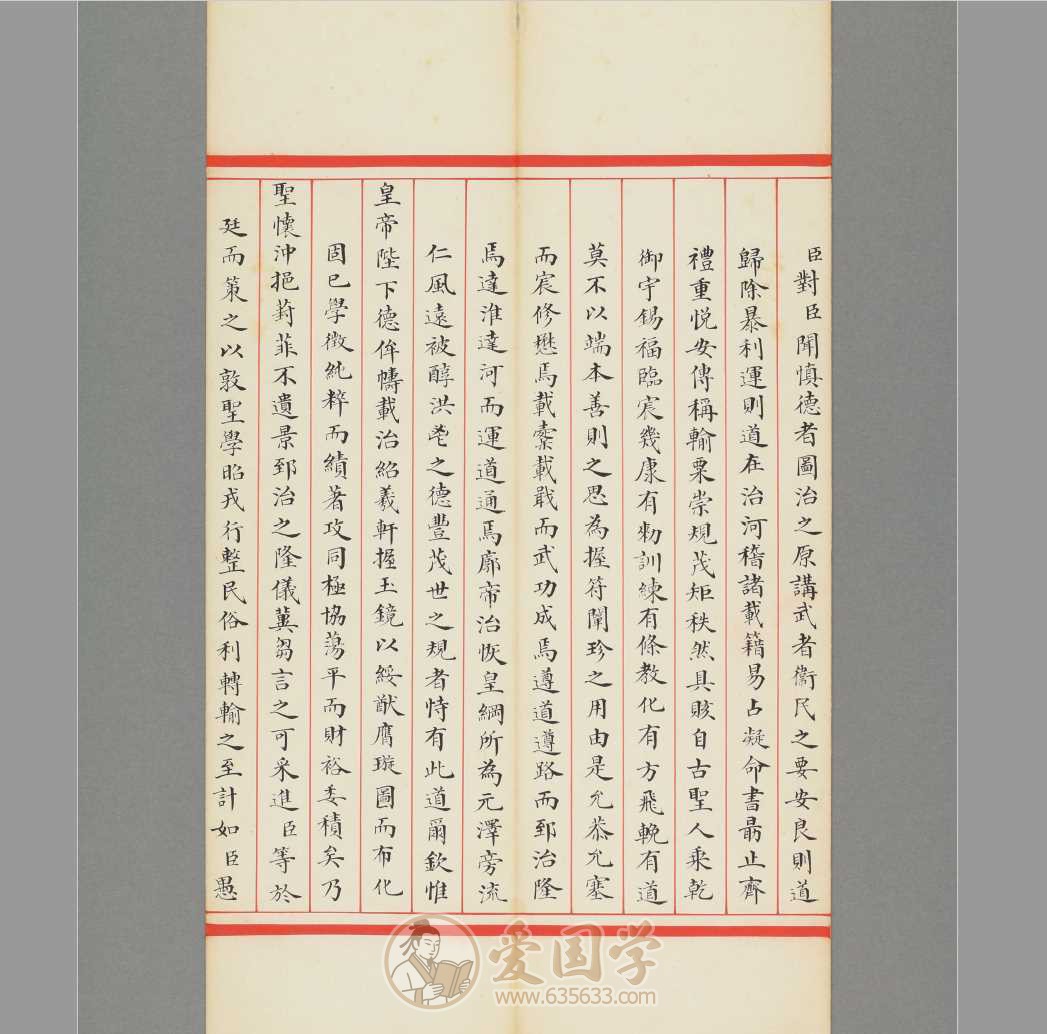 臣對臣聞慎德者圖治之原講武者衞民之要安良則道
歸除暴利運則道在治河稽諸載籍易占凝命書朂止齊
禮重悅安傳稱輸粟崇規茂矩秩然具賅自古聖人乘乾
御宇錫福臨宸幾康有勑訓練有條教化有方飛輓有道
莫不以端本善則之思為握符闡珍之用由是允恭允塞
而宸修懋焉載櫜載戢而武功成焉遵道遵路而郅治隆
焉達淮達河而運道通焉廓帝治恢皇綱所為元澤旁流
仁風遠被醇洪鬯之德豐茂世之規者恃有此道爾欽惟
皇帝陛下德侔幬載治紹羲軒握玉鏡以綏猷膺璇圖而布化
固已學徵純粹而績著攻同極協蕩平而財裕委積矣乃
聖懷沖挹葑菲不遺景郅治之隆儀冀芻言之可采進臣等於
廷而策之以敦聖學昭戎行整民俗利轉輸之至計如臣愚
爱国学
www.635633.com